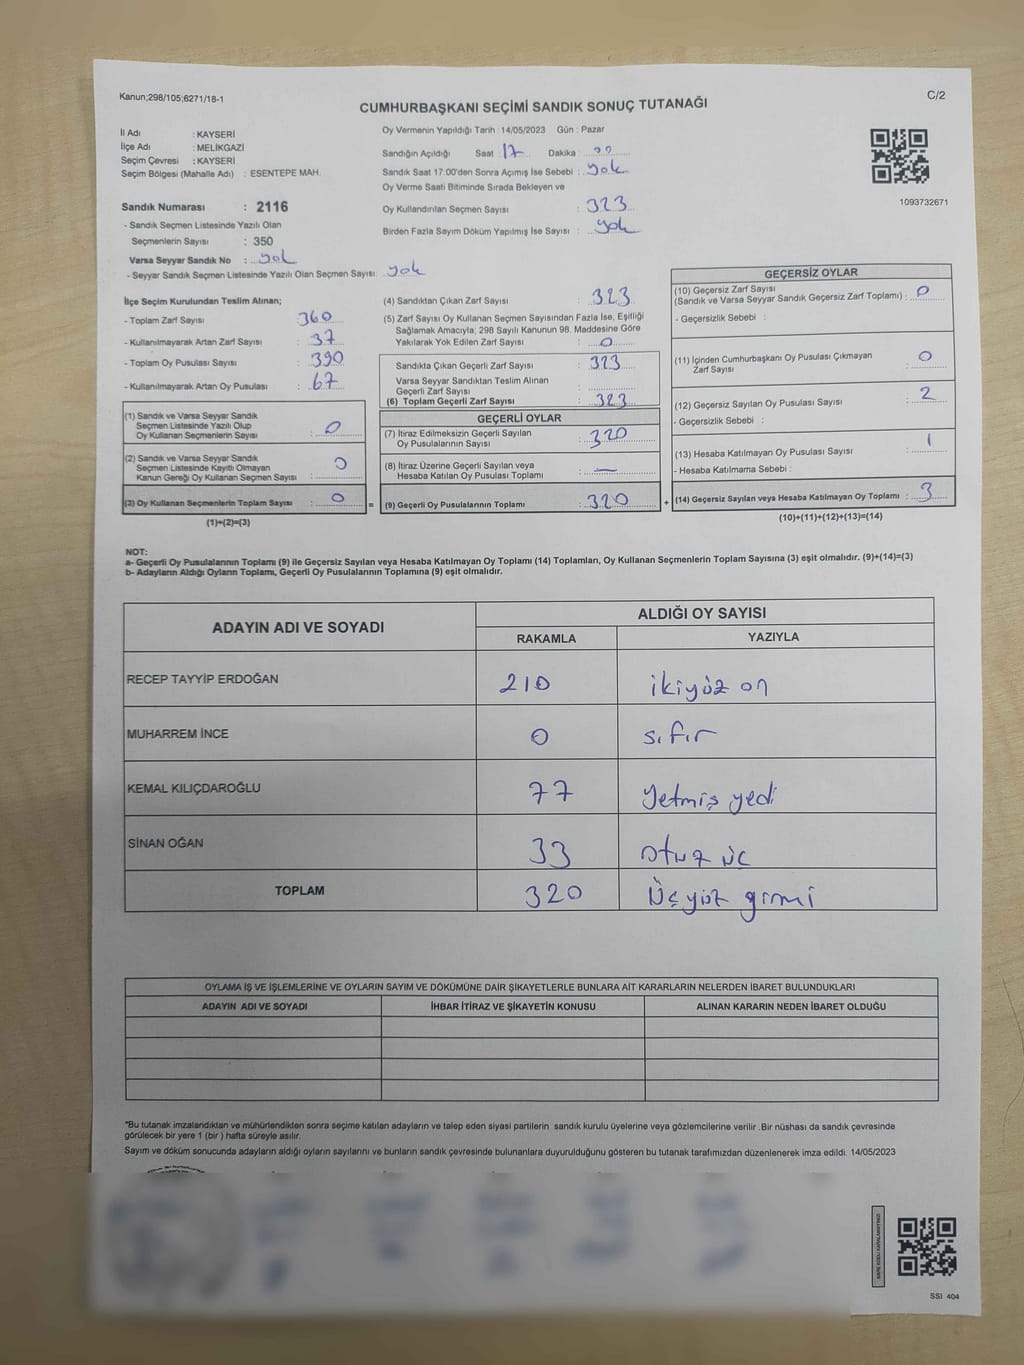 Kanun;298/105;6271/18-1
C/2
CUMHURBAŞKANI SEÇİMİ SANDIK SONUÇ TUTANAĞI
İl Adı : KAYSERİ
İlçe Adı : MELİKGAZİ
Seçim Çevresi : KAYSERİ
Seçim Bölgesi (Mahalle Adı) : ESENTEPE MAH.
Sandık Numarası : 2116
- Sandık Seçmen Listesinde Yazılı Olan
Seçmenlerin Sayısı : 350
Varsa Seyyar Sandık No : yok
- Seyyar Sandık Seçmen Listesinde Yazılı Olan Seçmen Sayısı: yok
Oy Vermenin Yapıldığı Tarih : 14/05/2023 Gün : Pazar
Sandığın Açıldığı Saat : 17 Dakika :
Sandık Saat 17:00'den Sonra Açımış İse Sebebi : yok
Oy Verme Saati Bitiminde Sırada Bekleyen ve
Oy Kullandırılan Seçmen Sayısı : 323
Birden Fazla Sayım Döküm Yapılmış İse Sayısı : yok
1093732671
İlçe Seçim Kurulundan Teslim Alınan;
- Toplam Zarf Sayısı : 360
- Kullanılmayarak Artan Zarf Sayısı : 37
- Toplam Oy Pusulası Sayısı : 390
- Kullanılmayarak Artan Oy Pusulası : 67
(1) Sandık ve Varsa Seyyar Sandık
Seçmen Listesinde Yazılı Olup
Oy Kullanan Seçmenlerin Sayısı : 0
(2) Sandık ve Varsa Seyyar Sandık
Seçmen Listesinde Kayıtlı Olmayan
Kanun Gereği Oy Kullanan Seçmen Sayısı : 0
(3) Oy Kullanan Seçmenlerin Toplam Sayısı : 0
(1)+(2)=(3)
(4) Sandıktan Çıkan Zarf Sayısı : 323
(5) Zarf Sayısı Oy Kullanan Seçmen Sayısından Fazla İse, Eşitliği
Sağlamak Amacıyla; 298 Sayılı Kanunun 98. Maddesine Göre
Yakılarak Yok Edilen Zarf Sayısı : 0
Sandıkta Çıkan Geçerli Zarf Sayısı : 323
Varsa Seyyar Sandıktan Teslim Alınan
Geçerli Zarf Sayısı :
(6) Toplam Geçerli Zarf Sayısı : 323
GEÇERLİ OYLAR
(7) İtiraz Edilmeksizin Geçerli Sayılan
Oy Pusulalarının Sayısı : 320
(8) İtiraz Üzerine Geçerli Sayılan veya
Hesaba Katılan Oy Pusulası Toplamı : —
= (9) Geçerli Oy Pusulalarının Toplamı : 320 +
GEÇERSİZ OYLAR
(10) Geçersiz Zarf Sayısı
(Sandık ve Varsa Seyyar Sandık Geçersiz Zarf Toplamı) : 0
- Geçersizlik Sebebi :
(11) İçinden Cumhurbaşkanı Oy Pusulası Çıkmayan
Zarf Sayısı : 0
(12) Geçersiz Sayılan Oy Pusulası Sayısı : 2
- Geçersizlik Sebebi :
(13) Hesaba Katılmayan Oy Pusulası Sayısı : 1
- Hesaba Katılmama Sebebi :
(14) Geçersiz Sayılan veya Hesaba Katılmayan Oy Toplamı : 3
(10)+(11)+(12)+(13)=(14)
NOT:
a- Geçerli Oy Pusulalarının Toplamı (9) ile Geçersiz Sayılan veya Hesaba Katılmayan Oy Toplamı (14) Toplamları, Oy Kullanan Seçmenlerin Toplam Sayısına (3) eşit olmalıdır. (9)+(14)=(3)
b- Adayların Aldığı Oyların Toplamı, Geçerli Oy Pusulalarının Toplamına (9) eşit olmalıdır.
ADAYIN ADI VE SOYADI
ALDIĞI OY SAYISI
RAKAMLA YAZIYLA
RECEP TAYYİP ERDOĞAN 210 ikiyüz on
MUHARREM İNCE 0 sıfır
KEMAL KILIÇDAROĞLU 77 Yetmiş yedi
SİNAN OĞAN 33 otuz üç
TOPLAM 320 Üçyüz yirmi
OYLAMA İŞ VE İŞLEMLERİNE VE OYLARIN SAYIM VE DÖKÜMÜNE DAİR ŞİKAYETLERLE BUNLARA AİT KARARLARIN NELERDEN İBARET BULUNDUKLARI
ADAYIN ADI VE SOYADI İHBAR İTİRAZ VE ŞİKAYETİN KONUSU ALINAN KARARIN NEDEN İBARET OLDUĞU
*Bu tutanak imzalandıktan ve mühürlendikten sonra seçime katılan adayların ve talep eden siyasi partilerin sandık kurulu üyelerine veya gözlemcilerine verilir .Bir nüshası da sandık çevresinde
görülecek bir yere 1 (bir ) hafta süreyle asılır.
Sayım ve döküm sonucunda adayların aldığı oyların sayılarını ve bunların sandık çevresinde bulunanlara duyurulduğunu gösteren bu tutanak tarafımızdan düzenlenerek imza edildi. 14/05/2023
SSI 404